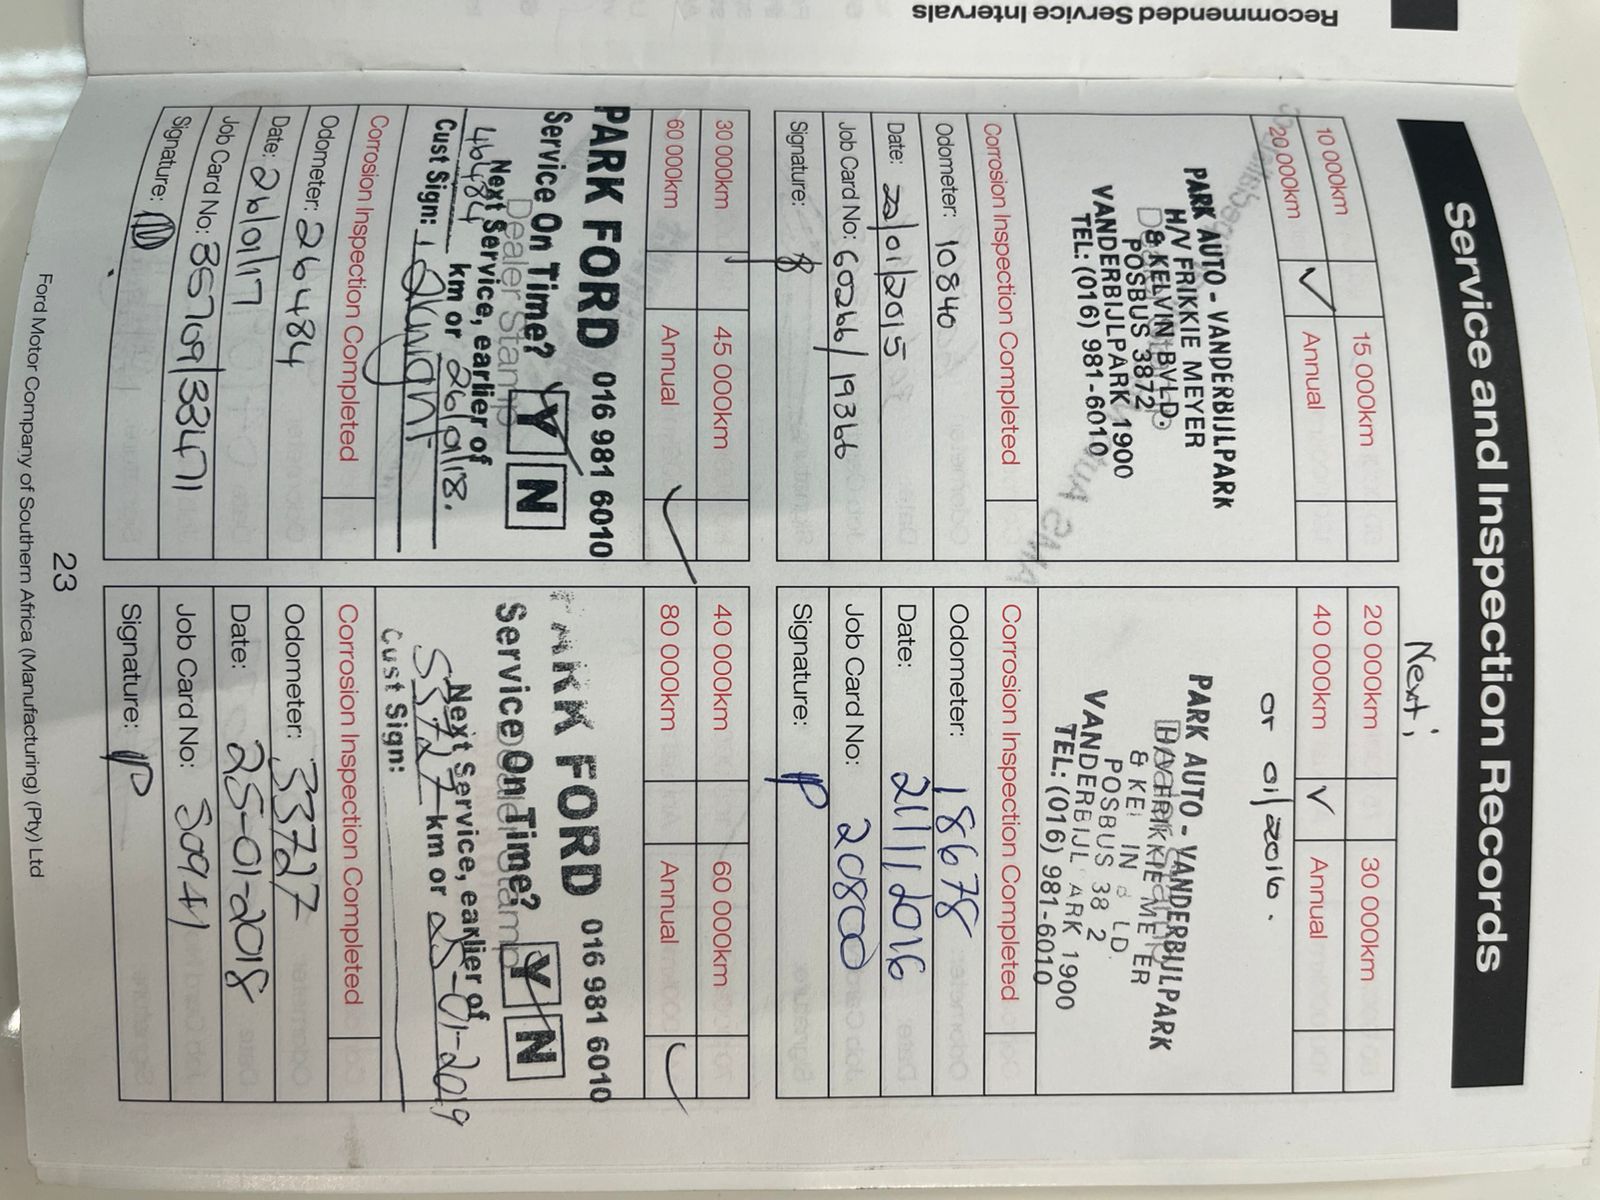 Recommended Service Intervals
Service and Inspection Records
10 000km
15 000km
20 000km ✓
Annual
PARK AUTO - VANDERBIJLPARK
H/V FRIKKIE MEYER
& KELVIN BVLD.
POSBUS 3872
VANDERBIJLPARK 1900
TEL: (016) 981-6010
Corrosion Inspection Completed
Odometer: 10840
Date: 20/01/2015
Job Card No: 60266/19366
Signature:
Next;
20 000km
30 000km
40 000km ✓
Annual
or 01/2016.
PARK AUTO - VANDERBIJLPARK
POSBUS 38 2
VANDERBIJL ARK 1900
TEL: (016) 981-6010
Corrosion Inspection Completed
Odometer: 18678
Date: 21/1/2016
Job Card No: 20800
Signature:
30 000km
45 000km
60 000km
Annual ✓
PARK FORD 016 981 6010
Service On Time? Y N
Dealer Stamp
Next Service, earlier of
46484 km or 26/01/18.
Cust Sign:
Corrosion Inspection Completed
Odometer: 26484
Date: 26/01/17
Job Card No: 35709/33471
Signature:
40 000km
60 000km
80 000km
Annual ✓
PARK FORD 016 981 6010
Service On Time? Y N
Dealer Stamp
Next Service, earlier of
53727 km or 25-01-2019
Cust Sign:
Corrosion Inspection Completed
Odometer: 33727
Date: 25-01-2018
Job Card No: 50941
Signature:
23
Ford Motor Company of Southern Africa (Manufacturing) (Pty) Ltd